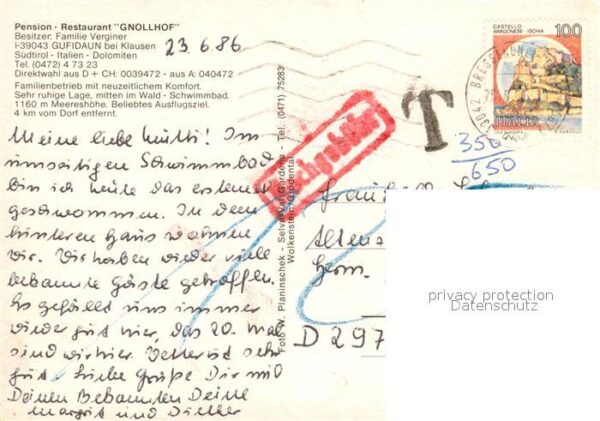 Pension - Restaurant "GNOLLHOF"
Besitzer: Familie Verginer
I-39043 GUFIDAUN bei Klausen
Südtirol - Italien - Dolomiten
Tel. (0472) 4 73 23
Direktwahl aus D + CH: 0039472 - aus A: 040472
Familienbetrieb mit neuzeitlichem Komfort.
Sehr ruhige Lage, mitten im Wald - Schwimmbad.
1160 m Meereshöhe. Beliebtes Ausflugsziel.
4 km vom Dorf entfernt.
23.6.86
Meine liebe Mutti! Im
umseitigen Schwimmbad
bin ich heute das erstemal
geschwommen. In dem
hinteren Haus wohnen
wir. Wir haben wieder viele
bekannte Gäste getroffen.
Es gefällt uns immer
wieder gut hier, das 20. Mal
sind wir hier. Wetter ist sehr
gut. Liebe Grüße Dir mit
Deinen Bekannten Deine
Margrit und Dieter
Foto Planinschek - Selva Val Gardena - Tel. (0471) 75283
Wolkenstein (Grödental)
Nachgebühr
T
350
650
CASTELLO
ARAGONESE - ISCHIA
100
ITALIA
39042
Frau
Altens
Herm
D 297
privacy protection
Datenschutz